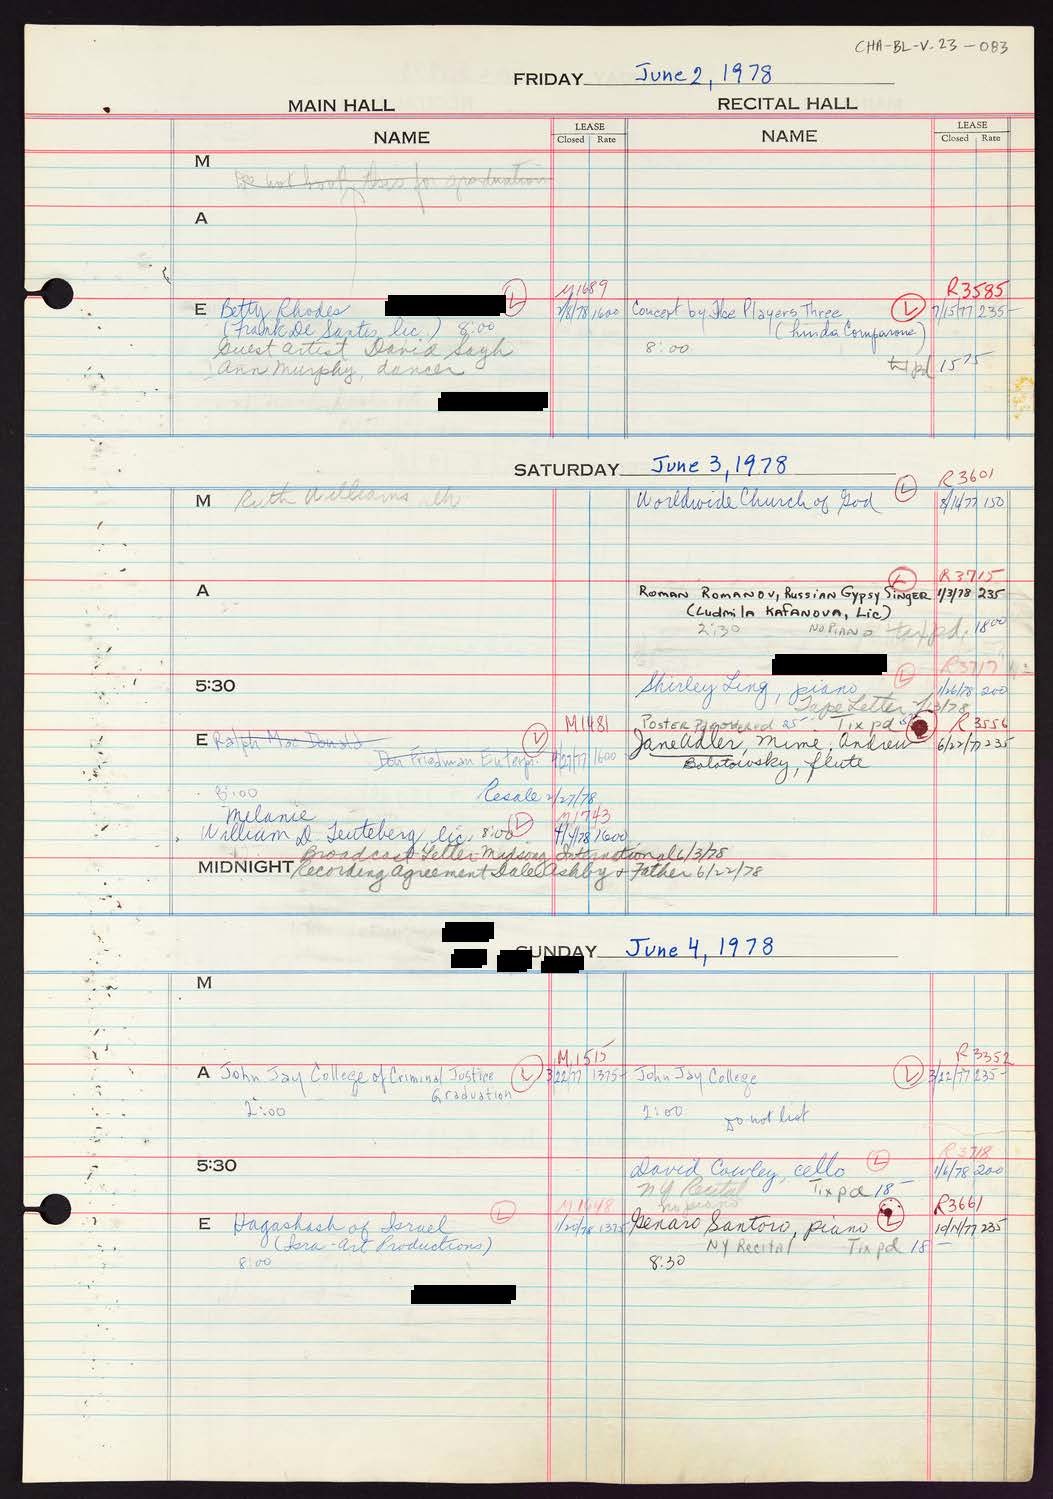 CHA-BL-V.23-083
FRIDAY June 2, 1978
MAIN HALL RECITAL HALL
NAME LEASE NAME LEASE
Closed Rate Closed Rate
M
Do not book this for graduation
A
M1689 R3585
E Betty Rhodes L 1600 Concert by The Players Three L 7/15/77 235-
(Frank De Santis, lic.) 8:00 (Linda Comparone)
Guest artist David 8:00
Ann Murphy, dancer pd 15 75
SATURDAY June 3, 1978
R3601
M Ruth Williams Worldwide Church of God L 8/14/77 150
R3715
A Roman Romanov, Russian Gypsy Singer L 1/3/78 235-
(Ludmila Kafanova, Lic)
2:30 NO PIANO tax pd. 18 00
R3717
5:30 Shirley Ling, piano L 1/26/78 200
Tape Letter
M1481 Poster 25- Tix pd R3556
E Ralph Mac Donald L Jane Adler, mime, Andrew 6/22/77 235
Don Friedman Enterp. 1600 Bolotowsky, flute
8:00 Resale 2/27/78
Melanie M1743
William D. Leuteberg, lic. 8:00 L 4/4/78 1600
Broadcast Letter Midsong International 6/3/78
MIDNIGHT Recording Agreement Dale Ashby & Father 6/22/78
SUNDAY June 4, 1978
M
M1515 R3352
A John Jay College of Criminal Justice L 3/22/77 1375- John Jay College L 3/22/77 235-
Graduation
2:00 2:00 Do not list
R3718
5:30 David Cowley, cello L 1/6/78 200
NY Recital Tix pd 18-
M1648 no piano R3661
E Hagashash of Israel L 1/20/78 1375 Genaro Santoro, piano L 10/14/77 235
(Isra-Art Productions) NY Recital Tix pd 18-
8:00 8:30